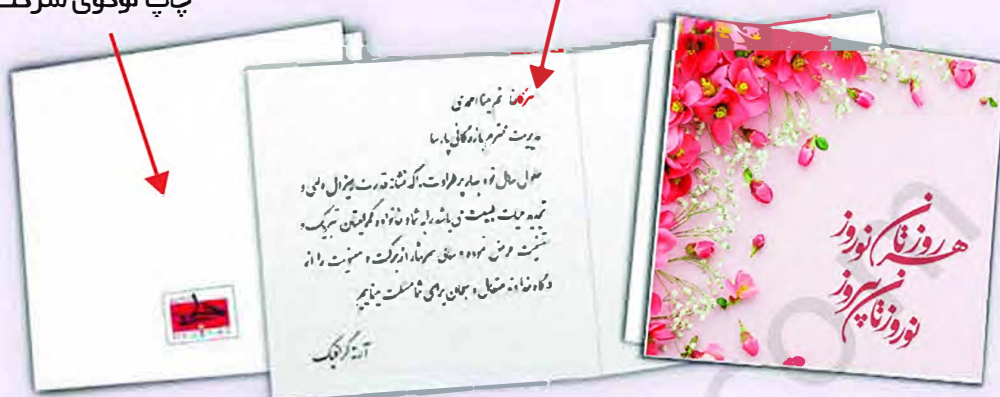 چاپ لوگوی شرکت
سرکار خانم مینا احمدی
مدیریت محترم بازرگانی پارسا
حلول سال نو و بهار پرطراوت، که نشانه قدرت لایزال الهی و
تجدید حیات طبیعت می باشد را به شما و خانواده گرامیتان تبریک و
تهنیت عرض نموده و سالی سرشار از برکت و معنویت را از
درگاه خداوند متعال و سبحان برای شما مسئلت مینماییم
هر روزتان نوروز
نوروزتان پیروز